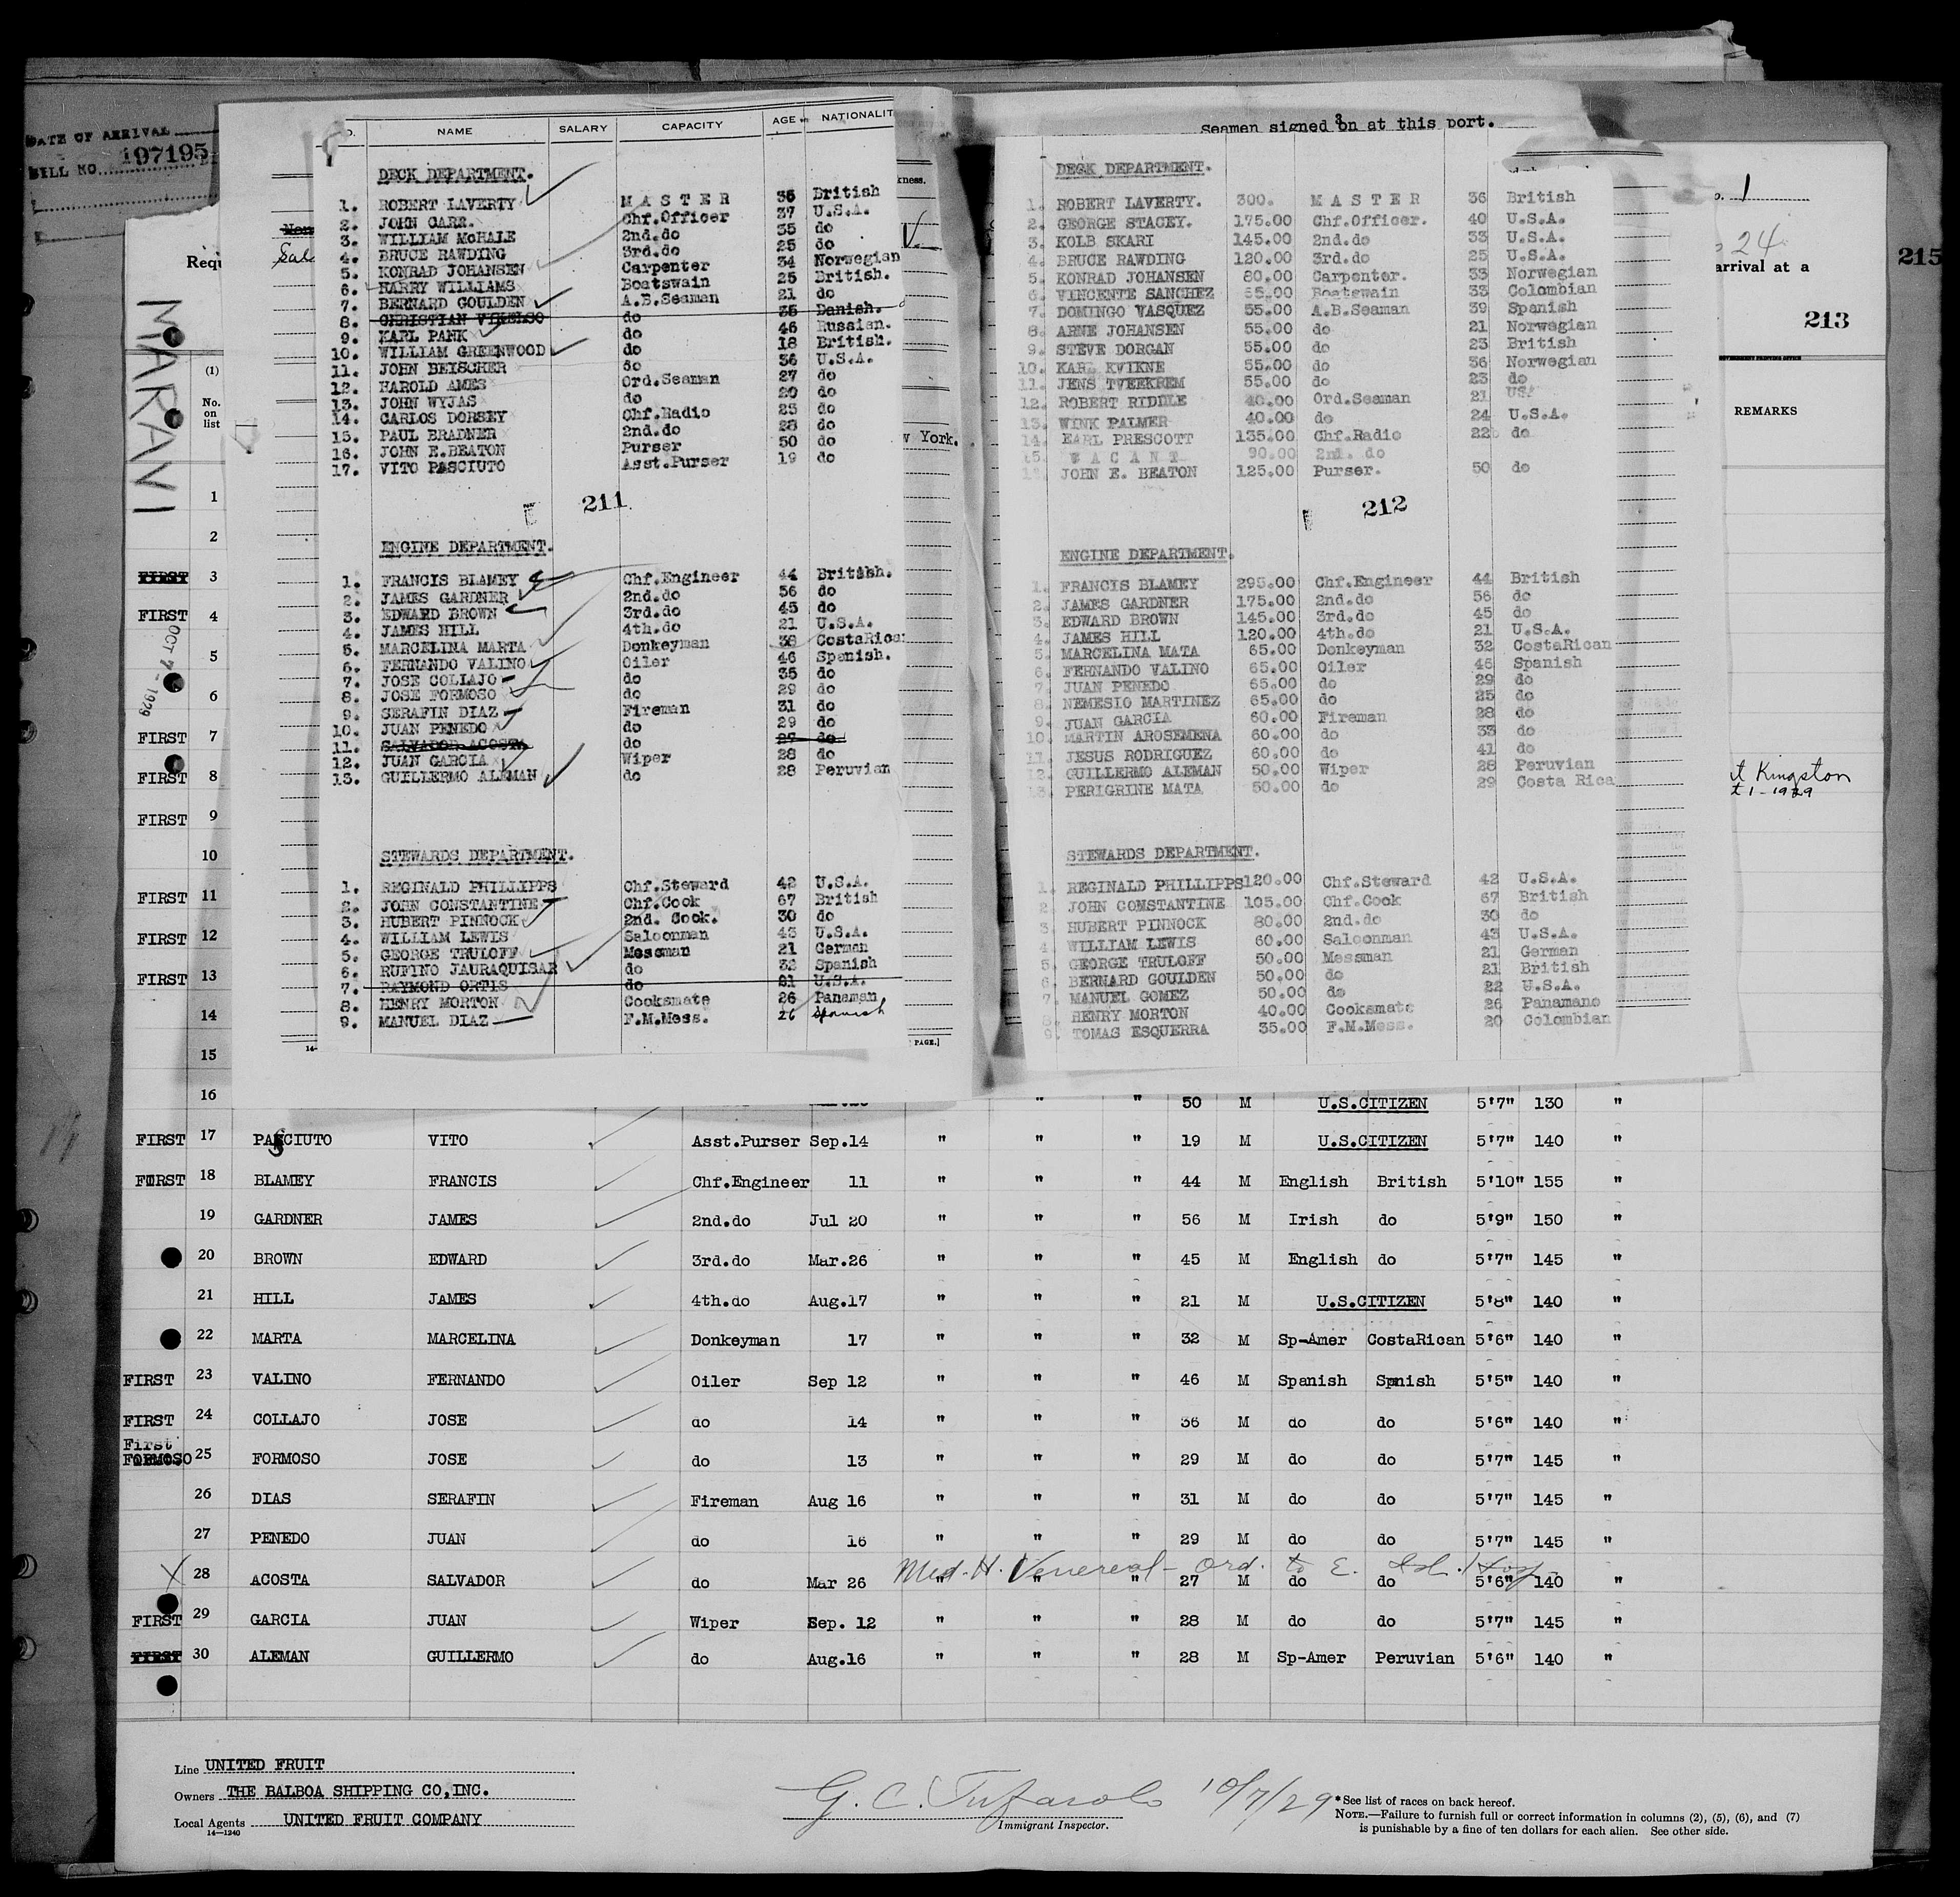 DATE OF ARRIVAL
BILL NO. 197195
MARAVI
OCT 7 - 1929
Requ
(1)
No.
on
list
NAME SALARY CAPACITY AGE NATIONALIT
DECK DEPARTMENT.
1. ROBERT LAVERTY MASTER 36 British
2. JOHN CARR. Chf.Officer 37 U.S.A.
3. WILLIAM McHALE 2nd.do 35 do
4. BRUCE RAWDING 3rd.do 25 do
5. KONRAD JOHANSEN Carpenter 34 Norwegian
6. HARRY WILLIAMS Boatswain 25 British.
7. BERNARD GOULDEN A.B.Seaman 21 do
8. CHRISTIAN do 35 Danish.
9. KARL PANK do 46 Russian.
10. WILLIAM GREENWOOD do 18 British.
11. JOHN BEISCHER do 36 U.S.A.
12. HAROLD AMES Ord.Seaman 27 do
13. JOHN WYJAS do 20 do
14. CARLOS DORSEY Chf.Radio 25 do
15. PAUL BRADNER 2nd.do 28 do
16. JOHN E.BEATON Purser 50 do
17. VITO PASCIUTO Asst.Purser 19 do
211
ENGINE DEPARTMENT.
1. FRANCIS BLAMEY Chf.Engineer 44 British.
2. JAMES GARDNER 2nd.do 56 do
3. EDWARD BROWN 3rd.do 45 do
4. JAMES HILL 4th.do 21 U.S.A.
5. MARCELINA MARTA Donkeyman 38 CostaRica
6. FERNANDO VALINO Oiler 46 Spanish.
7. JOSE COLLAJO do 35 do
8. JOSE FORMOSO do 29 do
9. SERAFIN DIAZ Fireman 31 do
10. JUAN PENEDO do 29 do
11. SALVADOR ACOSTA do 27 do
12. JUAN GARCIA Wiper 28 do
13. GUILLERMO ALEMAN do 28 Peruvian
STEWARDS DEPARTMENT.
1. REGINALD PHILLIPPS Chf.Steward 42 U.S.A.
2. JOHN CONSTANTINE Chf.Cook 67 British
3. HUBERT PINNOCK 2nd. Cook. 30 do
4. WILLIAM LEWIS Saloonman 43 U.S.A.
5. GEORGE TRULOFF Messman 21 German
6. RUFINO JAURAQUISAR do 32 Spanish
7. RAYMOND ORTIS do 21 U.S.A.
8. HENRY MORTON Cooksmate 26 Panaman
9. MANUEL DIAZ F.M.Mess. 26 Spanish
kness.
w York.
PAGE.]
Seamen signed on at this port.
3
DECK DEPARTMENT.
1. ROBERT LAVERTY. 300. MASTER 36 British
2. GEORGE STACEY. 175.00 Chf.Officer. 40 U.S.A.
3. KOLB SKARI 145.00 2nd.do 33 U.S.A.
4. BRUCE RAWDING 120.00 3rd.do 25 U.S.A.
5. KONRAD JOHANSEN 80.00 Carpenter. 33 Norwegian
6. VINCENTE SANCHEZ 65.00 Boatswain 33 Colombian
7. DOMINGO VASQUEZ 55.00 A.B.Seaman 39 Spanish
8. ARNE JOHANSEN 55.00 do 21 Norwegian
9. STEVE DORGAN 55.00 do 23 British
10. KARL KVIKNE 55.00 do 36 Norwegian
11. JENS TVEEKREM 55.00 do 23 do
12. ROBERT RIDDLE 40.00 Ord.Seaman 21 USA
13. WINK PALMER 40.00 do 24 U.S.A.
14. EARL PRESCOTT 135.00 Chf.Radio 22 do
15. VACANT 90.00 2nd. do
JOHN E. BEATON 125.00 Purser. 50 do
212
ENGINE DEPARTMENT.
1. FRANCIS BLAMEY 295.00 Chf.Engineer 44 British
2. JAMES GARDNER 175.00 2nd.do 56 do
3. EDWARD BROWN 145.00 3rd.do 45 do
4. JAMES HILL 120.00 4th.do 21 U.S.A.
5. MARCELINA MATA 65.00 Donkeyman 32 CostaRican
6. FERNANDO VALINO 65.00 Oiler 46 Spanish
7. JUAN PENEDO 65.00 do 29 do
8. NEMESIO MARTINEZ 65.00 do 25 do
9. JUAN GARCIA 60.00 Fireman 28 do
10. MARTIN AROSEMENA 60.00 do 33 do
11. JESUS RODRIGUEZ 60.00 do 41 do
12. GUILLERMO ALEMAN 50.00 Wiper 28 Peruvian
13. PERIGRINE MATA 50.00 do 29 Costa Rica
STEWARDS DEPARTMENT.
1. REGINALD PHILLIPPS 120.00 Chf.Steward 42 U.S.A.
2. JOHN COMSTANTINE 105.00 Chf.Cook 67 British
3. HUBERT PINNOCK 80.00 2nd.do 30 do
4. WILLIAM LEWIS 60.00 Saloonman 43 U.S.A.
5. GEORGE TRULOFF 50.00 Messman 21 German
6. BERNARD GOULDEN 50.00 do 21 British
7. MANUEL GOMEZ 50.00 do 22 U.S.A.
8. HENRY MORTON 40.00 Cooksmate 26 Panamano
9. TOMAS ESQUERRA 35.00 F.M.Mess. 20 Colombian
1
24
arrival at a
215
213
REMARKS
t Kingston
t 1-1929
1
2
FIRST 3
FIRST 4
5
6
FIRST 7
FIRST 8
FIRST 9
10
FIRST 11
FIRST 12
FIRST 13
14
15
16 " " 50 M U.S.CITIZEN 5'7" 130 "
FIRST 17 PASCIUTO VITO Asst.Purser Sep.14 " " " 19 M U.S.CITIZEN 5'7" 140 "
FIRST 18 BLAMEY FRANCIS Chf.Engineer 11 " " " 44 M English British 5'10" 155 "
19 GARDNER JAMES 2nd.do Jul 20 " " " 56 M Irish do 5'9" 150 "
20 BROWN EDWARD 3rd.do Mar.26 " " " 45 M English do 5'7" 145 "
21 HILL JAMES 4th.do Aug.17 " " " 21 M U.S.CITIZEN 5'8" 140 "
22 MARTA MARCELINA Donkeyman 17 " " " 32 M Sp-Amer CostaRican 5'6" 140 "
FIRST 23 VALINO FERNANDO Oiler Sep 12 " " " 46 M Spanish Spnish 5'5" 140 "
FIRST 24 COLLAJO JOSE do 14 " " " 36 M do do 5'6" 140 "
First
FORMOSO 25 FORMOSO JOSE do 13 " " " 29 M do do 5'7" 145 "
26 DIAS SERAFIN Fireman Aug 16 " " " 31 M do do 5'7" 145 "
27 PENEDO JUAN do 16 " " " 29 M do do 5'7" 145 "
Med. H. Venereal - ord. to E. Isl. Hosp
28 ACOSTA SALVADOR do Mar 26 " " " 27 M do do 5'6" 140 "
FIRST 29 GARCIA JUAN Wiper Sep. 12 " " " 28 M do do 5'7" 145 "
FIRST 30 ALEMAN GUILLERMO do Aug.16 " " " 28 M Sp-Amer Peruvian 5'6" 140 "
Line UNITED FRUIT
Owners THE BALBOA SHIPPING CO,INC.
Local Agents UNITED FRUIT COMPANY
14—1240
G. C. Tufarolo 10/7/29
Immigrant Inspector.
*See list of races on back hereof.
NOTE.—Failure to furnish full or correct information in columns (2), (5), (6), and (7)
is punishable by a fine of ten dollars for each alien. See other side.